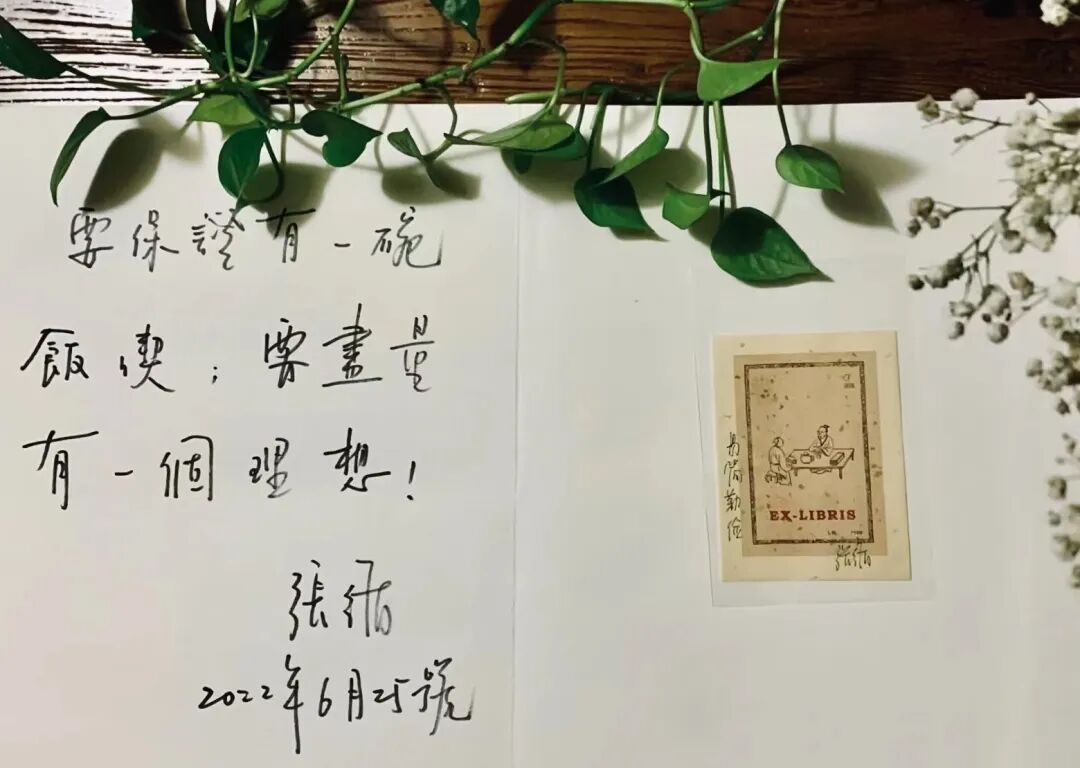 要保證有一碗
飯喫；要盡量
有一個理想！
張循
2022年6月25號
EX-LIBRIS
張循